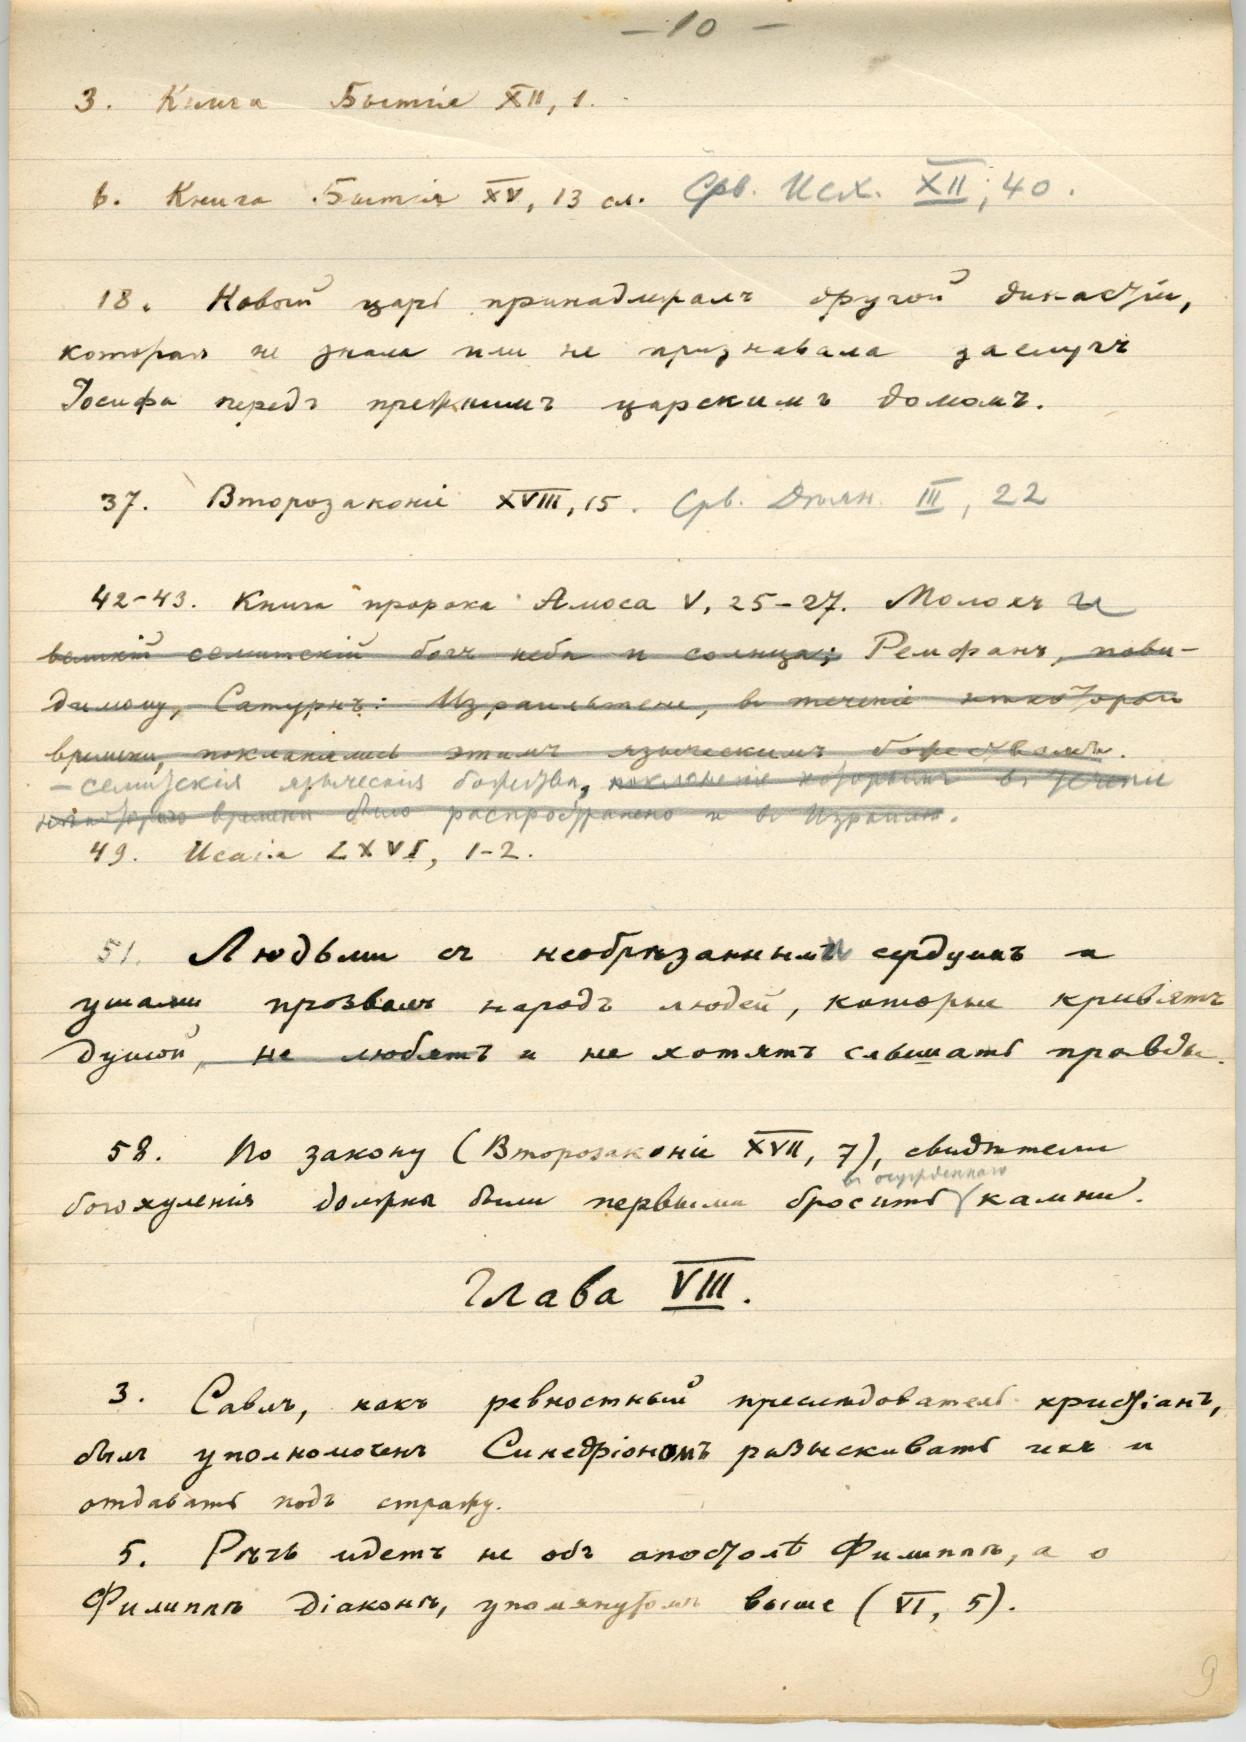 — 10 —
3. Книга Бытія XII, 1.
6. Книга Бытія XV, 13 сл. Срв. Исх. XII, 40.
18. Новый царь принадлежалъ другой династіи,
которая не знала или не признавала заслугъ
Іосифа передъ прежнимъ царскимъ домомъ.
37. Второзаконіе XVIII, 15. Срв. Дѣян. III, 22
42-43. Книга пророка Амоса V, 25-27. Молохъ и
великій семитскій богъ неба и солнца; Ремфанъ, пови-
димому, Сатурнъ: Израильтяне, въ теченіе нѣкотораго
времени, поклонялись этимъ языческимъ божествамъ.
— семитскія языческія божества, поклоненіе которымъ въ теченіе
нѣкотораго времени было распространено и въ Израилѣ.
49. Исаія LXVI, 1-2.
51. Людьми съ необрѣзаннымъ сердцемъ и
ушами прозвалъ народъ людей, которые кривятъ
душой, не любятъ и не хотятъ слышать правды.
58. По закону (Второзаконіе XVII, 7), свидѣтели
въ осужденнаго
богохуленія должны были первыми бросить камни.
Глава VIII.
3. Савлъ, какъ ревностный преслѣдователь христіанъ,
былъ уполномоченъ Синедріономъ разыскивать ихъ и
отдавать подъ стражу.
5. Рѣчь идетъ не объ апостолѣ Филиппѣ, а о
Филиппѣ діаконѣ, упомянутомъ выше (VI, 5).
9